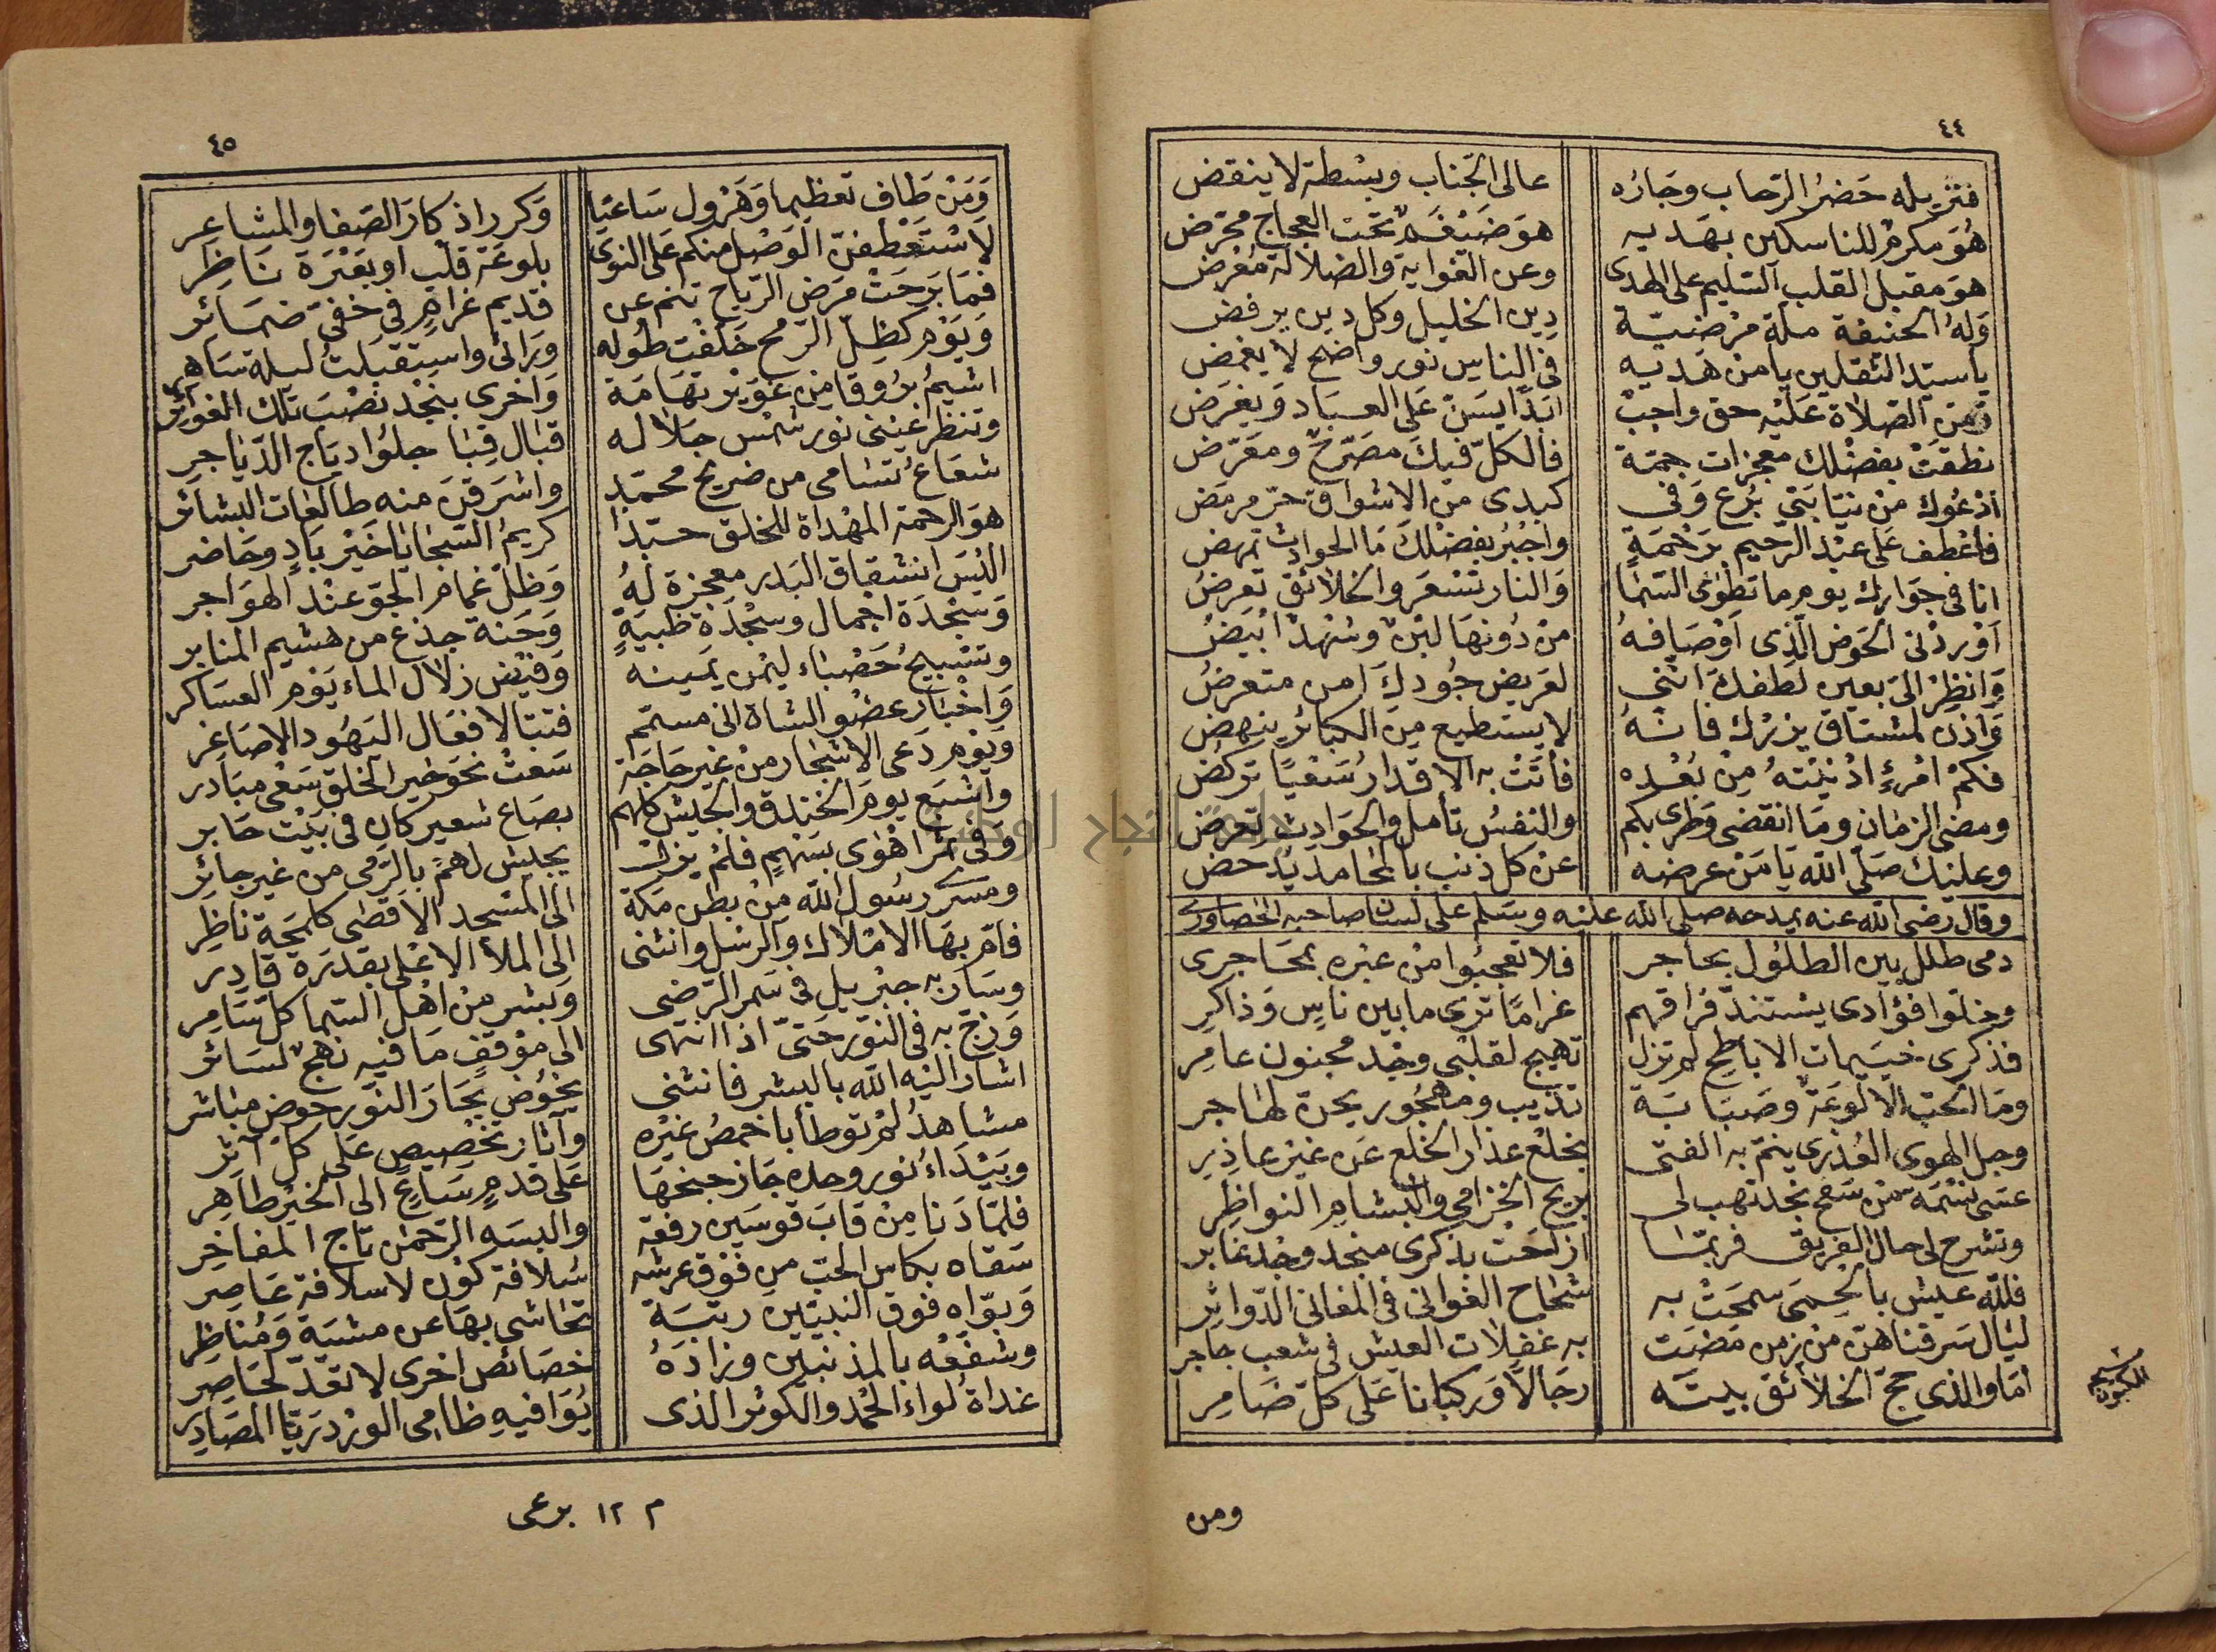 ٤٤
فنزيله خضر الرحاب وجاره عالى الجناب وبسطة لا ينقض
هو مكرم للناسكين بهديه هو ضيغم تحت العجاج محرض
هو مقبل القلب السليم على الهدى وعن الغواية والضلالة معرض
وله الحنيفة ملة مرضية دين الخليل وكل دين يرفض
يا سيد الثقلين يا من هديه فى الناس نور واضح لا يغمض
ومن الصلاة عليه حق واجب ابدا يسن على العباد ويفرض
نطقت بفضلك معجزات جمة فالكل فيك مصرح ومعرض
ادعوك من نيابتى برع وفى كبدى من الاشواق حر مرمض
فاعطف على عبد الرحيم برحمة واجبر بفضلك ما الحوادث تهض
انا فى جوارك يوم ما تطوى السما والنار تسعر والخلائق تعرض
اوردنى الحوض الذى اوصافه من دونها لبن وشهد ابيض
وانظر الى بعين لطفك اننى لعريض جودك امن متعرض
وأذن لمشتاق يزرك فانه لا يستطيع من الكبائر ينهض
فكم امرئ اذنيته من بعده فأتت به الاقدار سعيا تركض
ومضى الزمان وما انقضى وطرى بكم والنفس تأمل والحوادث تعرض
وعليك صلى الله يا من عرضه عن كل ذنب بالمحامد يدحض
وقال رضى الله عنه يمدحه صلى الله عليه وسلم على لسان صاحبه الخصاورى
دمى طلل بين الطلول بحاجر فلا تعجبوا من عبره بمحاجرى
وخلوا فؤادى يستند فراقهم غراما ترى ما بين ناس وذاكر
فذكرى خييمات الاباطح لم تزل تهيج لقلبى وجد مجنون عامر
وما الحب الا لوعة وصبابة تذيب ومهجور يحن لهاجر
وجل الهوى العذرى ينم به الفتى بخلع عذار الخلع عن غير عاذر
عسى نسمة من سفح نجد تهب لى بريح الخزامى والبشام النواظر
وتشرح لى حال الفريق فربما ازاحت بذكرى منجد وجد غابر
فلله عيش بالحمى سمحت به شحاح الغوانى فى المغانى الدواثر
ليال سرقناهن من زمن مضت به غفلات العيش فى شعب حاجر
اما والذى حج الخلائق بيته رجالا وركبانا على كل ضامر
ومن
٤٥
ومن طاف تعظيما وهرول ساعيا وكرر اذ كار الصفا والمشاعر
لاستعطفن الوصل منكم على النوى بلوعة قلب او بعبرة ناظر
فما برحت مرض الرياح تنم عن قديم غرام فى خفى ضمائر
ويوم كظل الرمح خلفت طوله ورائى واستقبلت ليلة ساهر
اشيم بروقا من غوير تهامة واخرى بنجد نصب تلك الغوائر
وتنظر عينى نور شمس جلاله قبال قبا جلوا دياج الدياجر
شعاع تسامى من ضريح محمد واشرقن منه طالعات البشائر
هو الرحمة المهداة للخلق حبذا كريم السجايا خير باد وحاضر
اليس انشقاق البدر معجزة له وظل غمام الجو عند الهواجر
وسجدة اجمال وسجدة ظبية وحنة جذع من هشيم المنابر
وتسبيح حصباء ليمن يمينه وفيض زلال الماء يوم العساكر
واخبار عضو الشاة انى مسمم فتبا لافعال اليهود الاصاغر
ويوم دعى الاشجار من غير حاجة سعت نحو خير الخلق سعى مبادر
واشبع يوم الخندق والجيش كلهم بصاع شعير كان فى بيت جابر
وفى اثر اهوى بسهم فلم يزل يجيش لهم بالرمى من غير جائر
ومسرى رسول الله من بطن مكة الى المسجد الاقصى كلمحة ناظر
فام بها الاملاك والرسل وانثنى الى الملأ الاعلى بقدرة قادر
وسار به جبريل فى سمر الرضى وبشر من اهل السما كل سامر
وزج به فى النور حتى اذا انتهى الى موقف ما فيه نهج لسائر
اشار اليه الله بالبشر فانثنى يخوض بحار النور خوض مباشر
مشاهد لم توطأ باخمص غيره وآثار تخصيص على كل آثر
وبيداء نور وحده جاز جنحها على قدم ساع الى الخير طاهر
فلما دنا من قاب قوسين رفقة والبسه الرحمن تاج المفاخر
سقاه بكاس الحب من فوق عرشه سلافة كون لا سلافة عاصر
وبواه فوق النبيين رتبة تحاشى بها عن مشبة ومناظر
وشفعه بالمذنبين وزاده خصائص اخرى لا تعد لحاصر
غداة لواء الحمد والكوثر الذى يوافيه ظامى الورد ريا المصادر
م ١٢ برعى